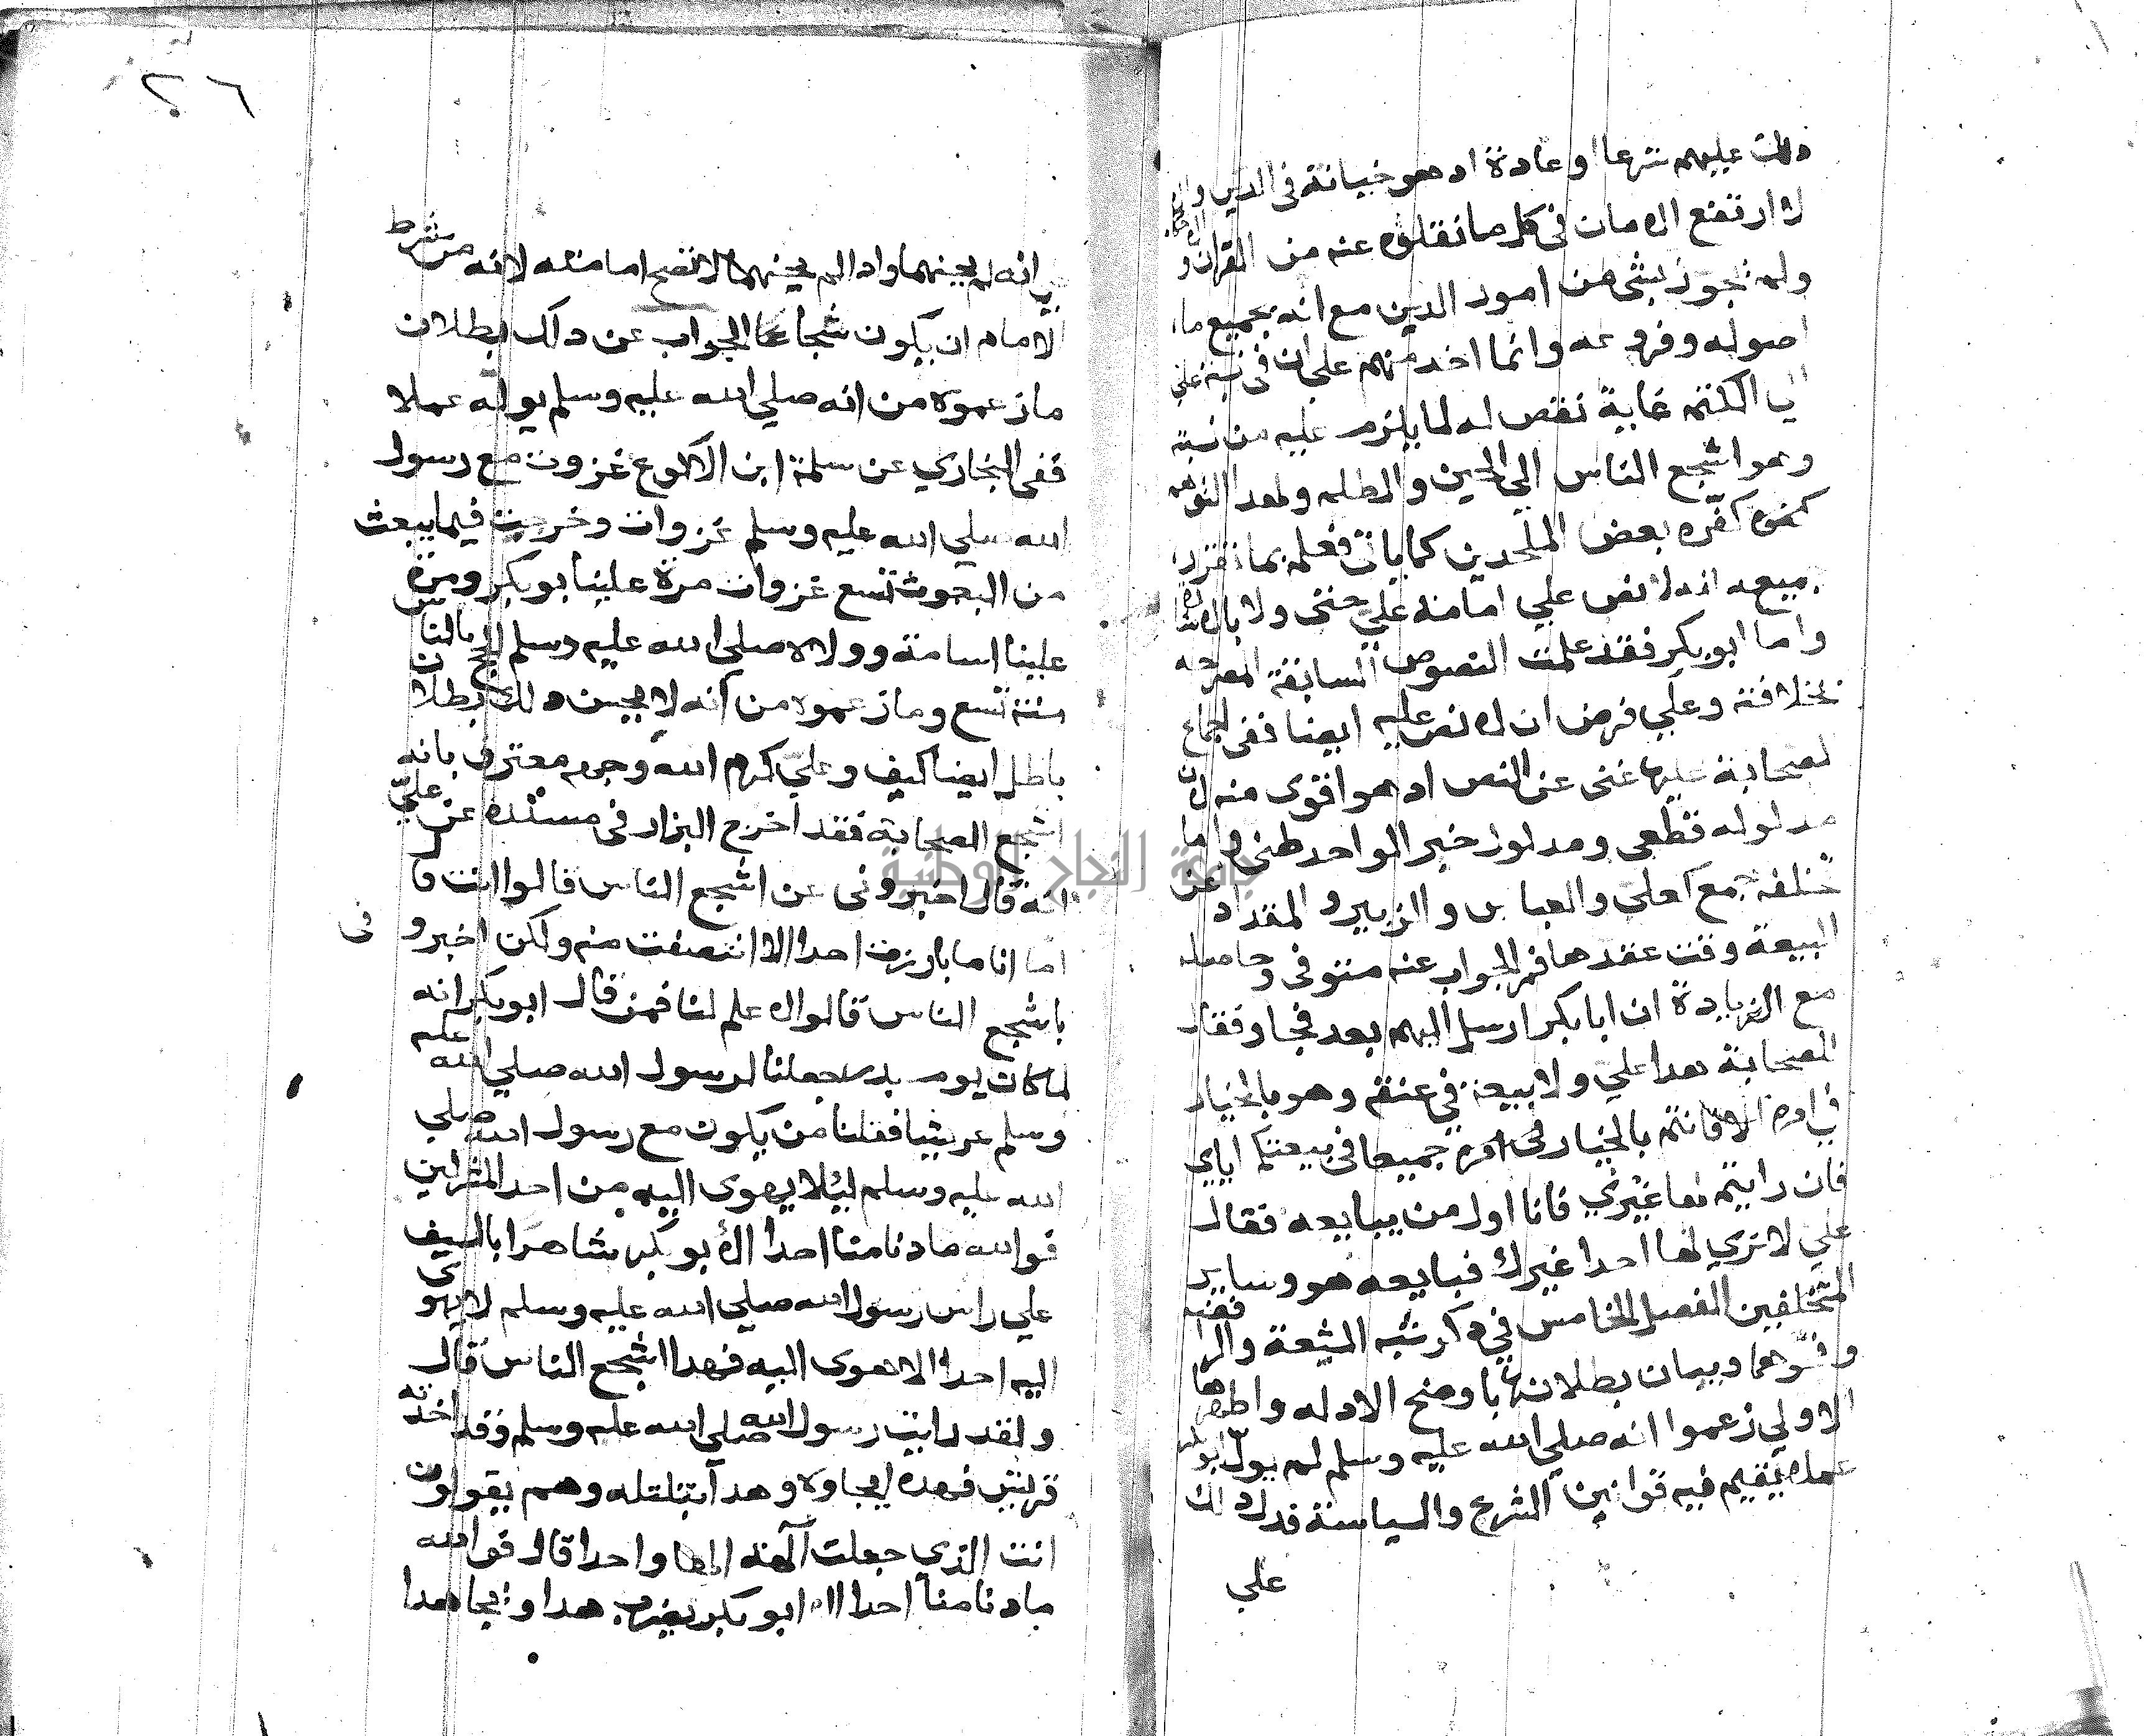 ذلك عليهم شرعا او عادة اد هو خيانة فى الدين والا
لارتفع الامان فى كل ما نقلوه عنه من القران و
ولم نجوز بشى من امور الدين مع انه بجميع ما
اصوله وفروعه وانما اخد منهم على ان فى نسبة على
الي الكتم غاية نقص له لما يلزم عليه من نسبة
وهو اشجع الناس الي الجبن والظلم ولهد التوهم
كفره بعض الملحدين كما ياتى فعلم بما تقرر
جميعه انه لا نص علي امامة علي حتى ولا بالاشارة
واما ابو بكر فقد علمت النصوص السابقة المصرحه
بخلافته وعلي فرض ان لا نص عليه ايضا ففى اجماع
الصحابة عليها غنى عن النص اد هو اقوى منه لان
مدلوله قطعى ومدلول خبر الواحد ظنى واما
تخلف جمع كعلى والعباس والزبير والمقداد عن
البيعة وقت عقدها فمر الجواب عنه مستوفى وحاصله
مع الزيادة ان ابا بكر ارسل اليهم بعد فجاو فقال
للصحابة هدا علي ولا بيعة في عنقه وهو بالخيار
في امره الا فانتم بالخيار فى امره جميعا فى بيعتكم اياي
فان رايتم لها غيري فانا اول من يبايعه فقال
علي لا نري لها احدا غيرك فبايعه هو وساير
المتخلفين الفصل الخامس في دكر شبه الشيعة والرافضه
ونحوهما وبيان بطلانها باوضح الادله واظهرها
الاولي زعموا انه صلي الله عليه وسلم لم يول ابو بكر
عملا يقيم فيه قوانين الشرع والسياسة فدل دلك
علي
٢٦
علي انه لم يحسنهما واد الم يحسنهما لا تصح امامته لانه من شرط
الامام ان يكون شجاعا الجواب عن دلك بطلان
ما زعموه من انه صلي الله عليه وسلم يوله عملا
ففى البخاري عن سلمة ابن الاكوع غزوت مع رسول
الله صلي الله عليه وسلم غزوات وخرجت فيما يبعث
من البعوث تسع غزوات مرة علينا ابو بكر ومرة
علينا اسامة وولاه صلي الله عليه وسلم الحج بالناس
سنة تسع وما زعموه من انه لا يحسن دلك بطلان
باطل ايضا كيف وعلي كرم الله وجهه معترف بانه
اشجع الصحابة فقد اخرج البزار فى مسنده عن علي
انه قال اخبرونى عن اشجع الناس قالوا انت قال
اما انا ما بارزت احدا الا انتصفت منه ولكن اخبرو نى
باشجع الناس قالوا لا علم لنا فمن قال ابو بكر انه
لما كان يوم بدر جعلنا لرسول الله صلي الله عليه
وسلم عريشا فقلنا من يكون مع رسول الله صلي
الله عليه وسلم ليلا يهوى اليه من احد المشركين
فوالله ما دنا منا احدا الا ابو بكر شاهرا بالسيف
علي راس رسول الله صلي الله عليه وسلم لا يهوى
اليه احد الا هوى اليه فهدا اشجع الناس قال
ولقد رايت رسول الله صلي الله عليه وسلم وقد اخدته
قريش فهده يجاوه وهدا يتلتله وهم يقولون
انت الذي جعلت الالهة الها واحدا قال فوالله
ما دنا منا احدا الا ابو بكر يضرب هدا ويجا هدا
جامعة النجاح الوطنية